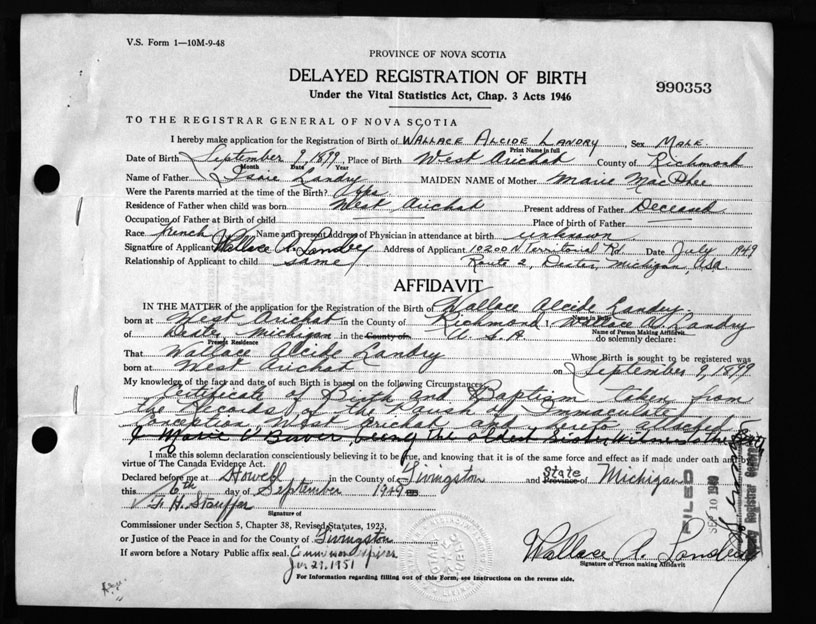 V.S. Form 1—10M-9-48
PROVINCE OF NOVA SCOTIA
DELAYED REGISTRATION OF BIRTH
990353
Under the Vital Statistics Act, Chap. 3 Acts 1946
TO THE REGISTRAR GENERAL OF NOVA SCOTIA
I hereby make application for the Registration of Birth of WALLACE ALCIDE LANDRY, Sex MALE.
Print Name in full
Date of Birth September 9, 1899, Place of Birth West Arichat County of Richmond
Month Date Year
Name of Father Landry MAIDEN NAME of Mother Marie MacPhee
Were the Parents married at the time of the Birth?
Residence of Father when child was born West Arichat Present address of Father Deceased
Occupation of Father at Birth of child Place of birth of Father
Race french Name and present Address of Physician in attendance at birth unknown
Signature of Applicant Wallace A. Landry Address of Applicant 10200 N Territorial Rd. Date July 1949
Relationship of Applicant to child same Route 2, Dexter, Michigan, USA
AFFIDAVIT
IN THE MATTER of the application for the Registration of the Birth of Wallace Alcide Landry.
Name in Full
born at West Arichat in the County of Richmond, Wallace A. Landry
Name of Person Making Affidavit.
of Dexter, Michigan in the County of do solemnly declare:
Present Residence
That Wallace Alcide Landry Whose Birth is sought to be registered was
born at West Arichat on September 9, 1899
My knowledge of the fact and date of such Birth is based on the following Circumstances:
Certificate of Birth and Baptism taken from
the Records of the Parish of Immaculate
Conception West Arichat and hereto attached
I Marie being the oldest Sister, witness to the Birth
I make this solemn declaration conscientiously believing it to be true, and knowing that it is of the same force and effect as if made under oath and by
virtue of The Canada Evidence Act.
Declared before me at Howell in the County of Livingston and State Province of Michigan
this 6th day of September 1949
F. H. Stauffer
Signature of
Commissioner under Section 5, Chapter 38, Revised Statutes, 1923,
or Justice of the Peace in and for the County of Livingston
If sworn before a Notary Public affix seal. Commission expires
Jan 27, 1951
Wallace A. Landry
Signature of Person making Affidavit
For Information regarding filling out of this Form, see instructions on the reverse side.
FILED
SEP 10 1949